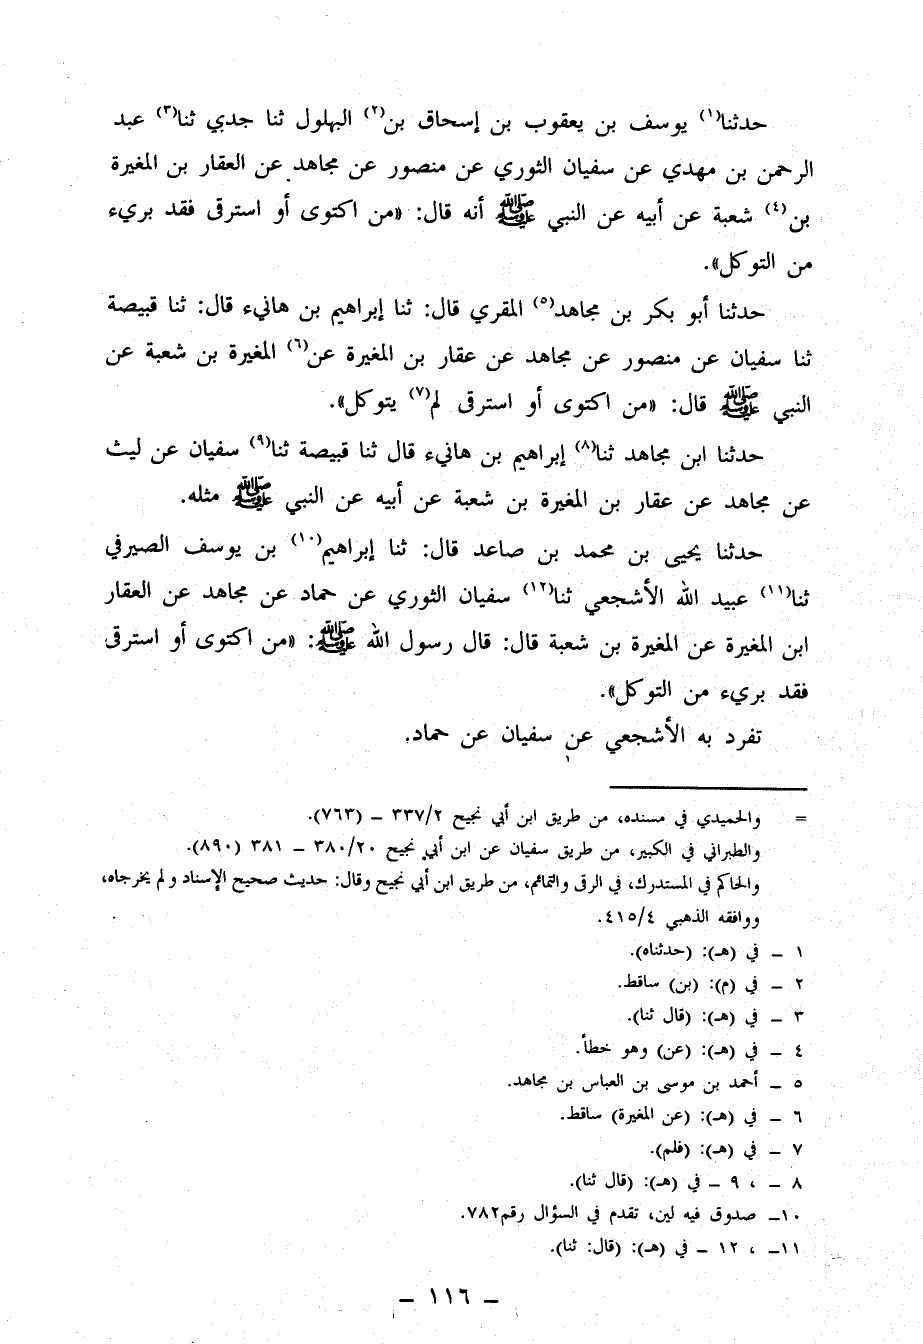 حدثنا(١) يوسف بن يعقوب بن إسحاق بن(٢) البهلول ثنا جدي ثنا(٣) عبد
الرحمن بن مهدي عن سفيان الثوري عن منصور عن مجاهد عن العقار بن المغيرة
بن(٤) شعبة عن أبيه عن النبي ﷺ أنه قال: «من اكتوى أو استرقى فقد بريء
من التوكل».
حدثنا أبو بكر بن مجاهد(٥) المقري قال: ثنا إبراهيم بن هانيء قال: ثنا قبيصة
ثنا سفيان عن منصور عن مجاهد عن عقار بن المغيرة عن(٦) المغيرة بن شعبة عن
النبي ﷺ قال: «من اكتوى أو استرقى لم(٧) يتوكل».
حدثنا ابن مجاهد ثنا(٨) إبراهيم بن هانيء قال ثنا قبيصة ثنا(٩) سفيان عن ليث
عن مجاهد عن عقار بن المغيرة بن شعبة عن أبيه عن النبي ﷺ مثله.
حدثنا يحيى بن محمد بن صاعد قال: ثنا إبراهيم(١٠) بن يوسف الصيرفي
ثنا(١١) عبيد الله الأشجعي ثنا(١٢) سفيان الثوري عن حماد عن مجاهد عن العقار
ابن المغيرة عن المغيرة بن شعبة قال: قال رسول الله ﷺ: «من اكتوى أو استرقى
فقد بريء من التوكل».
تفرد به الأشجعي عن سفيان عن حماد.
= والحميدي في مسنده، من طريق ابن أبي نجيح ٣٣٧/٢ ـ (٧٦٣).
والطبراني في الكبير، من طريق سفيان عن ابن أبي نجيح ٣٨٠/٢٠ ـ ٣٨١ (٨٩٠).
والحاكم في المستدرك، في الرقى والتمائم، من طريق ابن أبي نجيح وقال: حديث صحيح الإسناد ولم يخرجاه،
ووافقه الذهبي ٤١٥/٤.
١ ـ في (هـ): (حدثناه).
٢ ـ في (م): (بن) ساقط.
٣ ـ في (هـ): (قال ثنا).
٤ ـ في (هـ): (عن) وهو خطأ.
٥ ـ أحمد بن موسى بن العباس بن مجاهد.
٦ ـ في (هـ): (عن المغيرة) ساقط.
٧ ـ في (هـ): (فلم).
٨ ـ ، ٩ ـ في (هـ): (قال ثنا).
١٠ـ صدوق فيه لين، تقدم في السؤال رقم٧٨٢.
١١ـ ، ١٢ ـ في (هـ): (قال: ثنا).
ـ ١١٦ ـ